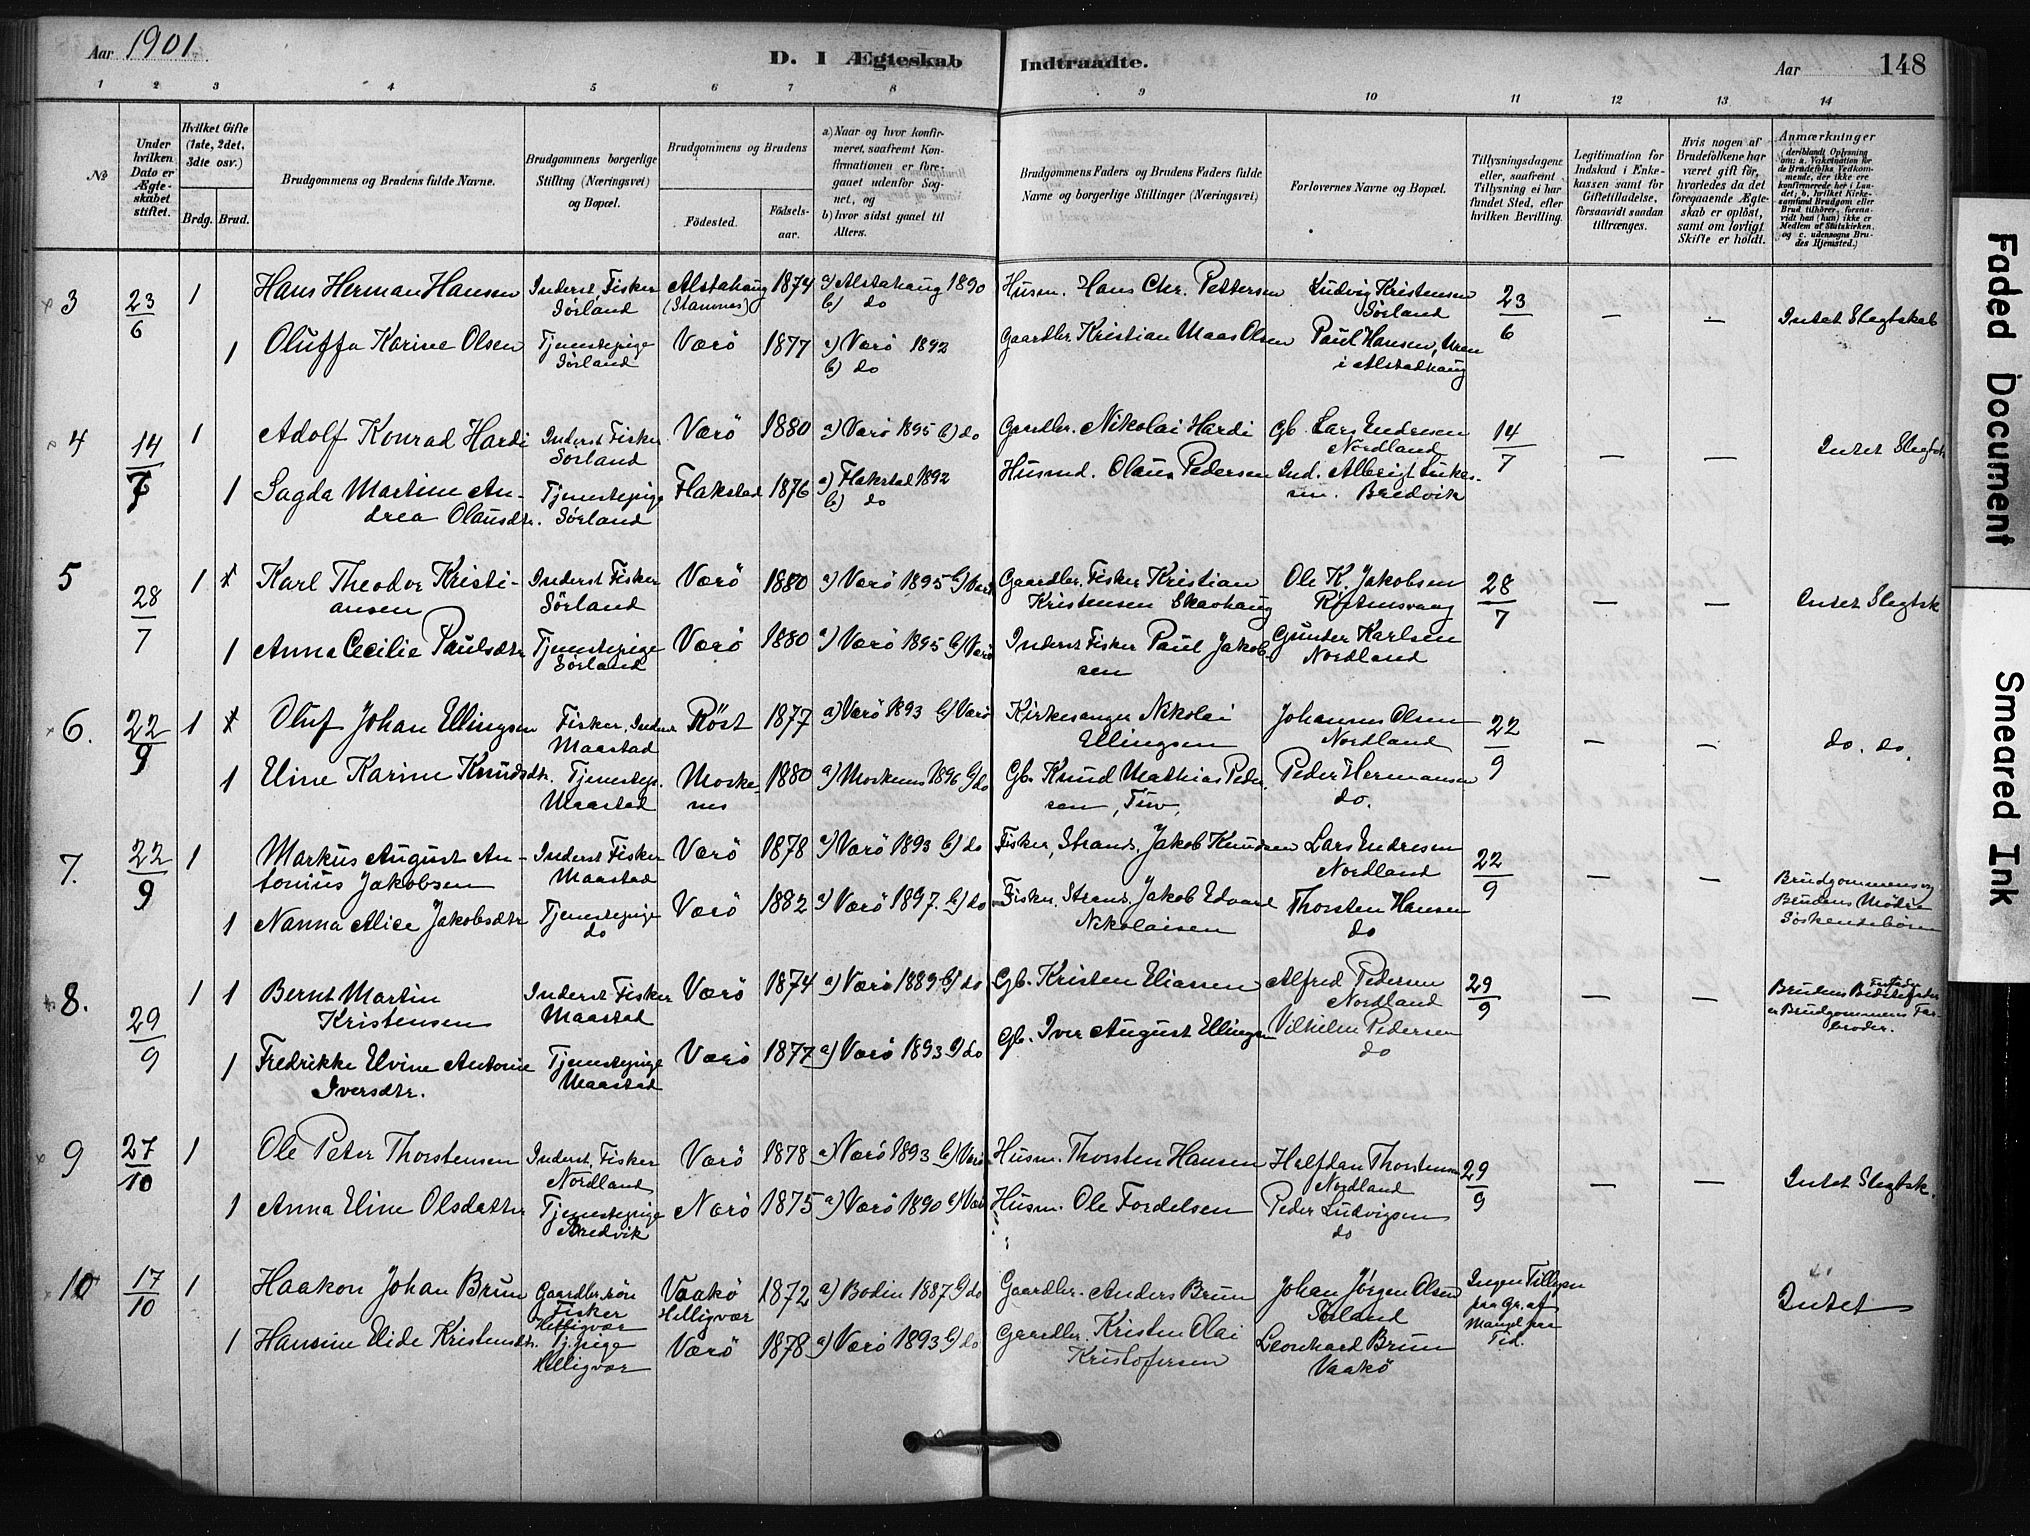 Aar 1901
D. I Ægteskab Indtraadte.
Aar 148
1 2 3 4 5 6 7 8 9 10 11 12 13 14
No
Under hvilken Dato er Ægteskabet stiftet.
Hvilket Gifte (1ste, 2det, 3dte osv.)
Brdg. Brud.
Brudgommens og Brudens fulde Navne.
Brudgommens borgerlige Stilling (Næringsvei) og Bopæl.
Brudgommens og Brudens
Fødested.
Fødselsaar.
a) Naar og hvor konfirmeret, saafremt Konfirmationen er foregaaet udenfor Sognet, og
b) hvor sidst gaaet til Alters.
Brudgommens Faders og Brudens Faders fulde Navne og borgerlige Stillinger (Næringsvei)
Forlovernes Navne og Bopæl.
Tillysningsdagene eller, saafremt Tillysning ei har fundet Sted, efter hvilken Bevilling.
Legitimation for Indskud i Enkekassen samt for Giftetilladelse, forsaavidt saadan tiltrænges.
Hvis nogen af Brudefolkene har været gift før, hvorledes da det foregaaende Ægteskab er opløst, samt om lovligt Skifte er holdt.
Anmærkninger
(deriblandt Oplysning om: a. Vaksination for de Brudefolks Vedkommende, der ikke ere konfirmerede her i Landet; b. hvilket Kirkesamfund Brudgom eller Brud tilhører, forsaavidt han (hun) ikke er Medlem af Statskirken, og c. udensogns Brudes Hjemsted.)
3 23/6 1 Hans Herman Hansen Inderst Fisker Sørland Alstahaug (Stamnes) 1874 a) Alstahaug 1890 b) do Husm. Hans Chr. Pettersen Ludvig Kristensen Sørland 23/6 — — Intet Slegtskab
1 Oluffa Karine Olsen Tjenestepige Sørland Værö 1877 a) Værö 1892 b) do Gaardbr. Kristian Maas Olsen Paul Hansen, Uren i Alstadhaug
4 14/7 1 Adolf Konrad Hardi Inderst Fisker Sørland Værö 1880 a) Værö 1895 b) do Gaardbr. Nikolai Hardi Gb. Lars Endresen Nordland 14/7 — — Intet Slegtsk
1 Sagda Martine Andrea Olausdtr. Tjenestepige Sørland Flakstad 1876 a) Flakstad 1892 b) do Husmd. Olaus Pedersen Ind. Albrigt Lukessen. Bredvik
5 28/7 1 Karl Theodor Kristiansen Inderst Fisker Sørland Værö 1880 a) Værö 1895 b) Værö Gaardbr. Fisker Kristian Kristensen Skavhaug Ole K. Jakobsen 28/7 — — Intet Slegtsk
1 Anna Cecilie Paulsdtr Tjenestepige Sørland Værö 1880 a) Værö 1895 b) Værö Inderst Fisker Paul Jakobsen Gunder Karlsen Nordland
6. 22/9 1 Oluf Johan Ellingsen Fisker, Inderst Maastad Röst 1877 a) Værö 1893 b) Værö Kirkesanger Nikolai Ellingsen Johannes Olsen Nordland 22/9 — — do. do.
1 Eline Karine Knudsdtr. Tjenestepg. Maastad Moskenes 1880 a) Moskenes 1896 b) do Gb. Knud Mathias Pedersen, Tuv Peder Hermansen do.
7. 22/9 1 Markus August Antonius Jakobsen Inderst Fisker Maastad Værö 1878 a) Værö 1893 b) do Fisker, Strands. Jakob Knudsen Lars Endresen Nordland 22/9 — — Brudgommens og Brudens Mødre Søskendebörn
1 Nanna Alice Jakobsdtr Tjenestepige do Værö 1882 a) Værö 1897. b) do Fisker, Strands. Jakob Edvard Nikolaisen Thorsten Hansen do
8. 29/9 1 1 Bernt Martin Kristensen Inderst Fisker Maastad Værö 1874 a) Værö 1889 b) do Gb. Kristen Eliasen Alfred Pedersen Nordland 29/9 — — Brudens Bedstefader er Brudgommens Farbroder.
1 Fredrikke Elvine Antonie Iversdtr. Tjenestepige Maastad Værö 1877 a) Værö 1893 b) do Gb. Iver August Ellingsen Vilhelm Pedersen do
9 27/10 1 Ole Peter Thorstensen Inderst, Fisker Nordland Værö 1878 a) Værö 1893 b) Værö Husm. Thorsten Hansen Halfdan Thorstensen Nordland 29/9 — — Intet Slegtsk.
1 Anna Eline Olsdatter Tjenestepige Bredvik Værö 1875 a) Værö 1890 b) Værö Husm. Ole Fordelsen Peder Ludvigsen do
10 17/10 1 Haakon Johan Brun Gaardbr.sön Fisker Helligvær Vaakö Helligvær 1872 a) Bodin 1887 b) do Gaardbr. Anders Brun Johan Jörgen Olsen Sörland Ingen Tillysn paa Gr. af Mangel paa Tid. Intet
1 Hansine Elide Kristensdtr. Tj.pige Helligvær Værö 1878 a) Værö 1893 b) do Gaardbr. Kristen Olai Kristofersen Leonhard Brun Vaakö
Faded Document
Smeared Ink